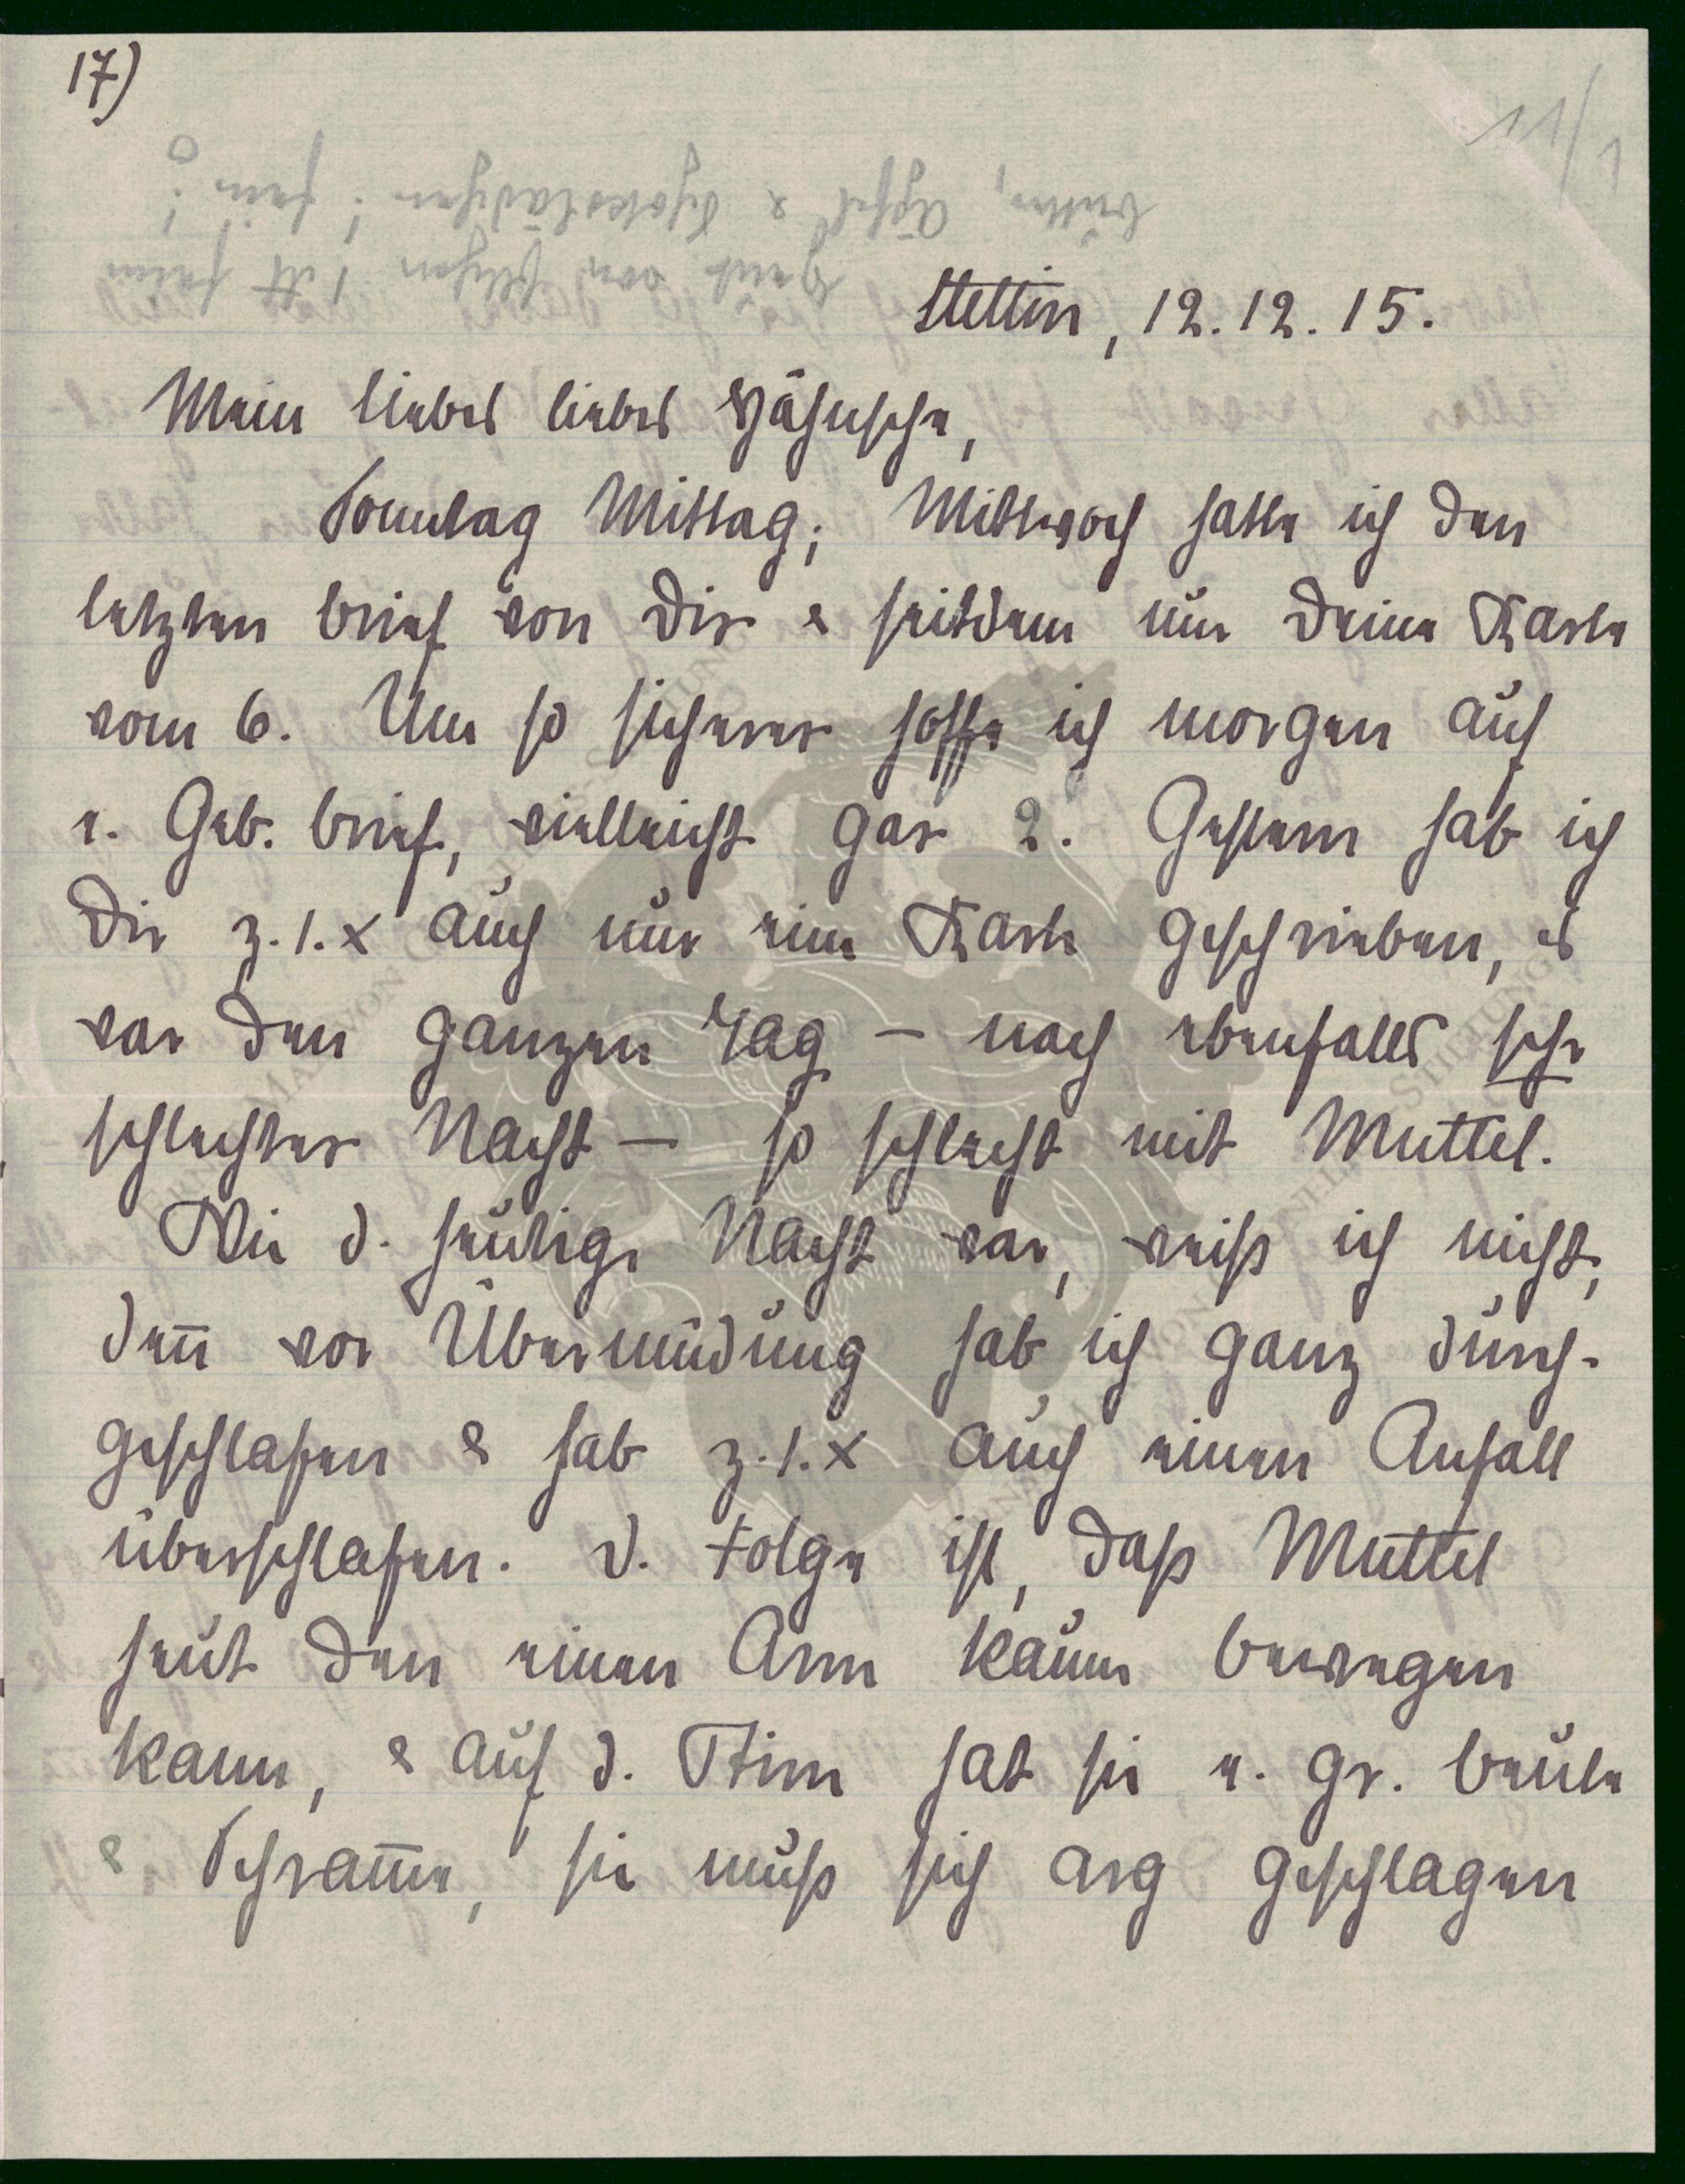 17)
butter, Äpfel & Schokolädchen! fein!
Grete von Schesen 1 ℔ feine
Stettin, 12.12.15.
Mein liebes liebes Hähnsche,
Sonntag Mittag; Mittwoch hatte ich den
letzten Brief von Dir & seitdem nur Deine Karte
vom 6. Um so sicherer hoffe ich morgen auf
e. Geb. brief, vielleicht gar 2. Gestern hab ich
Dir z. 1. x auch nur eine Karte geschrieben, es
war den ganzen Tag – nach ebenfalls sehr
schlechter Nacht – so schlecht mit Muttel.
Wie d. heutige Nacht war, weiß ich nicht,
den̅ vor Übermüdung hab ich ganz durch-
geschlafen & hab z. 1. x auch einen Anfall
überschlafen. D. Folge ist, daß Muttel
heut den einen Arm kaum bewegen
kann, & auf d. Stirn hat sie e. gr. Beule
& Schram̅e, sie muß sich arg geschlagen